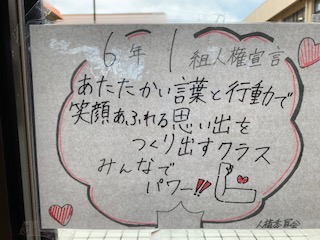 6年1組人権宣言
あたたかい言葉と行動で
笑顔あふれる思い出を
つくり出すクラス
みんなで
パワー!!
人権委員会